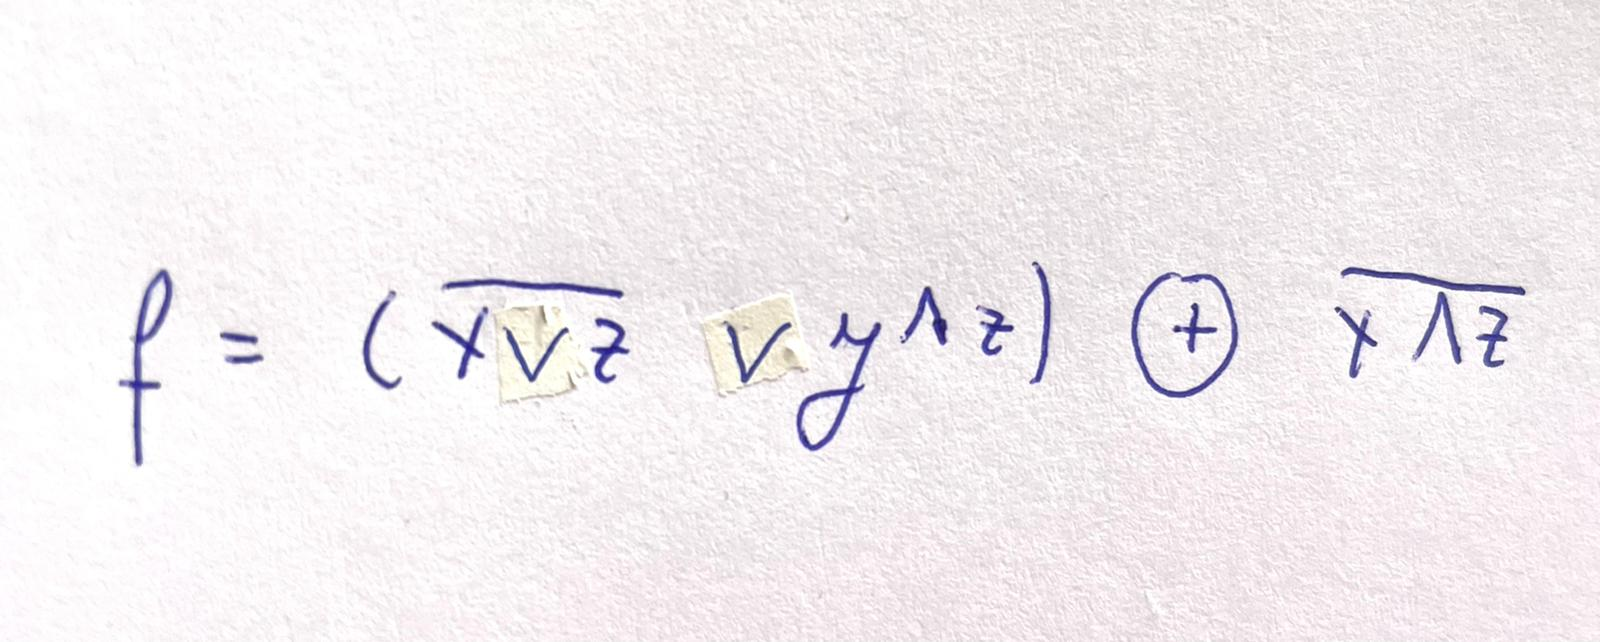 f = (x̅ ̅∨̅ ̅z̅ ∨ y ∧ z) ⊕ x̅ ̅∧̅ ̅z̅